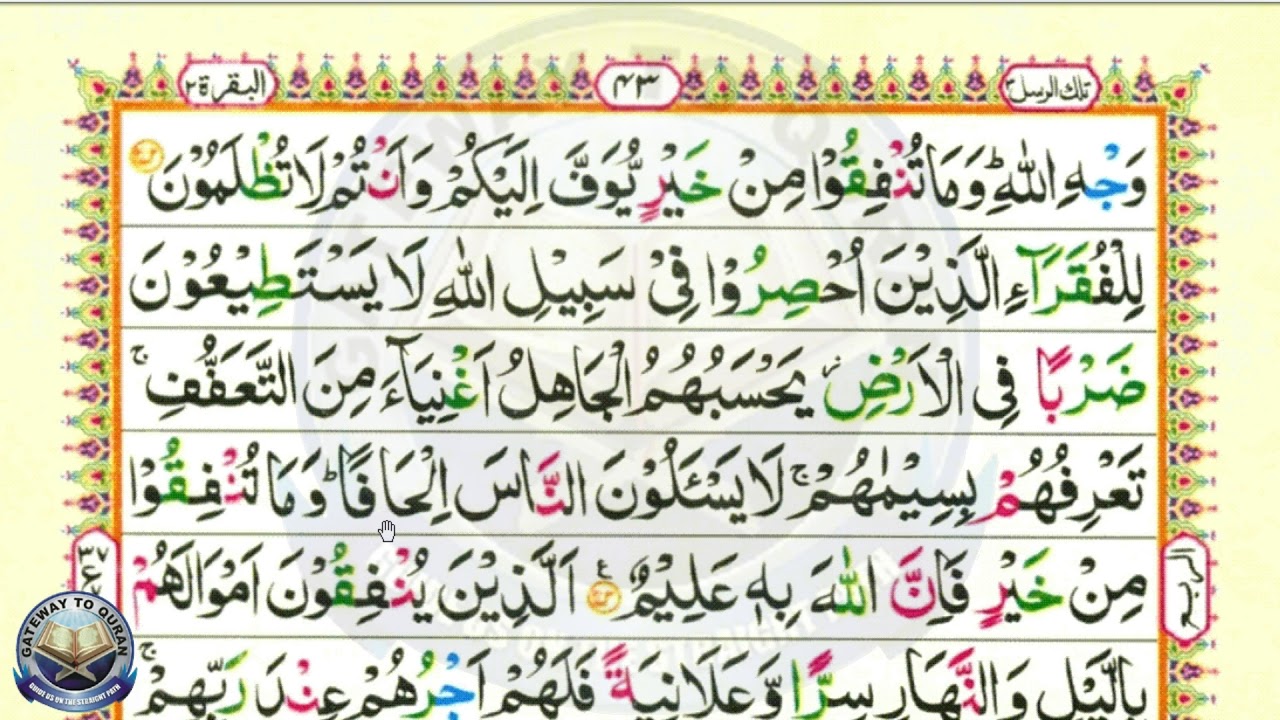 تلك الرسل ۳ ۴۳ البقرة ۲
وَجْهِ اللّٰهِ ؕ وَمَا تُنْفِقُوْا مِنْ خَيْرٍ يُّوَفَّ اِلَيْكُمْ وَاَنْتُمْ لَا تُظْلَمُوْنَ
لِلْفُقَرَآءِ الَّذِيْنَ اُحْصِرُوْا فِىْ سَبِيْلِ اللّٰهِ لَا يَسْتَطِيْعُوْنَ
ضَرْبًا فِى الْاَرْضِ ؗ يَحْسَبُهُمُ الْجَاهِلُ اَغْنِيَآءَ مِنَ التَّعَفُّفِ ۚ
تَعْرِفُهُمْ بِسِيْمٰهُمْ ۚ لَا يَسْـَٔلُوْنَ النَّاسَ اِلْحَافًا ؕ وَمَا تُنْفِقُوْا
مِنْ خَيْرٍ فَاِنَّ اللّٰهَ بِهٖ عَلِيْمٌ اَلَّذِيْنَ يُنْفِقُوْنَ اَمْوَالَهُمْ
بِالَّيْلِ وَالنَّهَارِ سِرًّا وَّعَلَانِيَةً فَلَهُمْ اَجْرُهُمْ عِنْدَ رَبِّهِمْ ۚ
۳۷
ع
GATEWAY TO QURAN
GUIDE US ON THE STRAIGHT PATH